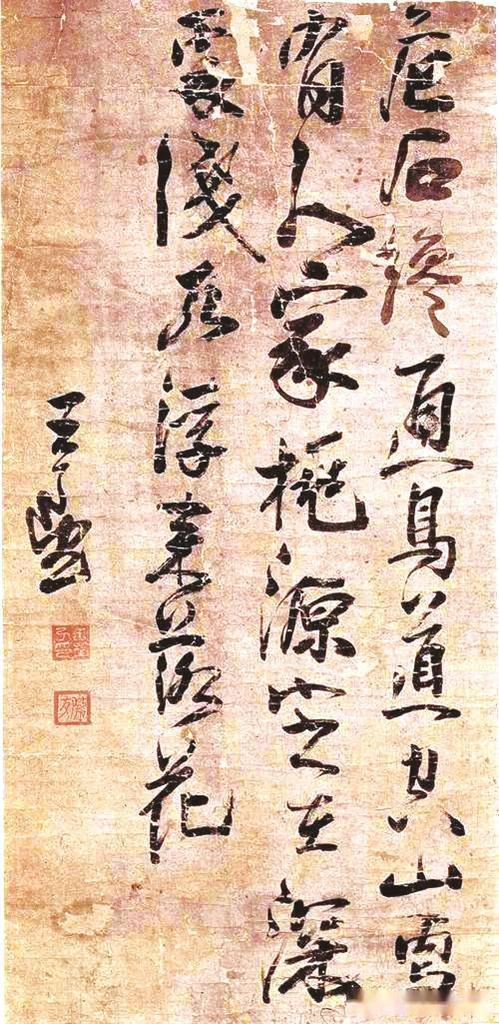 危石纔通鳥道空山更
有人家桃源定在深
處水浮來落花
王了望